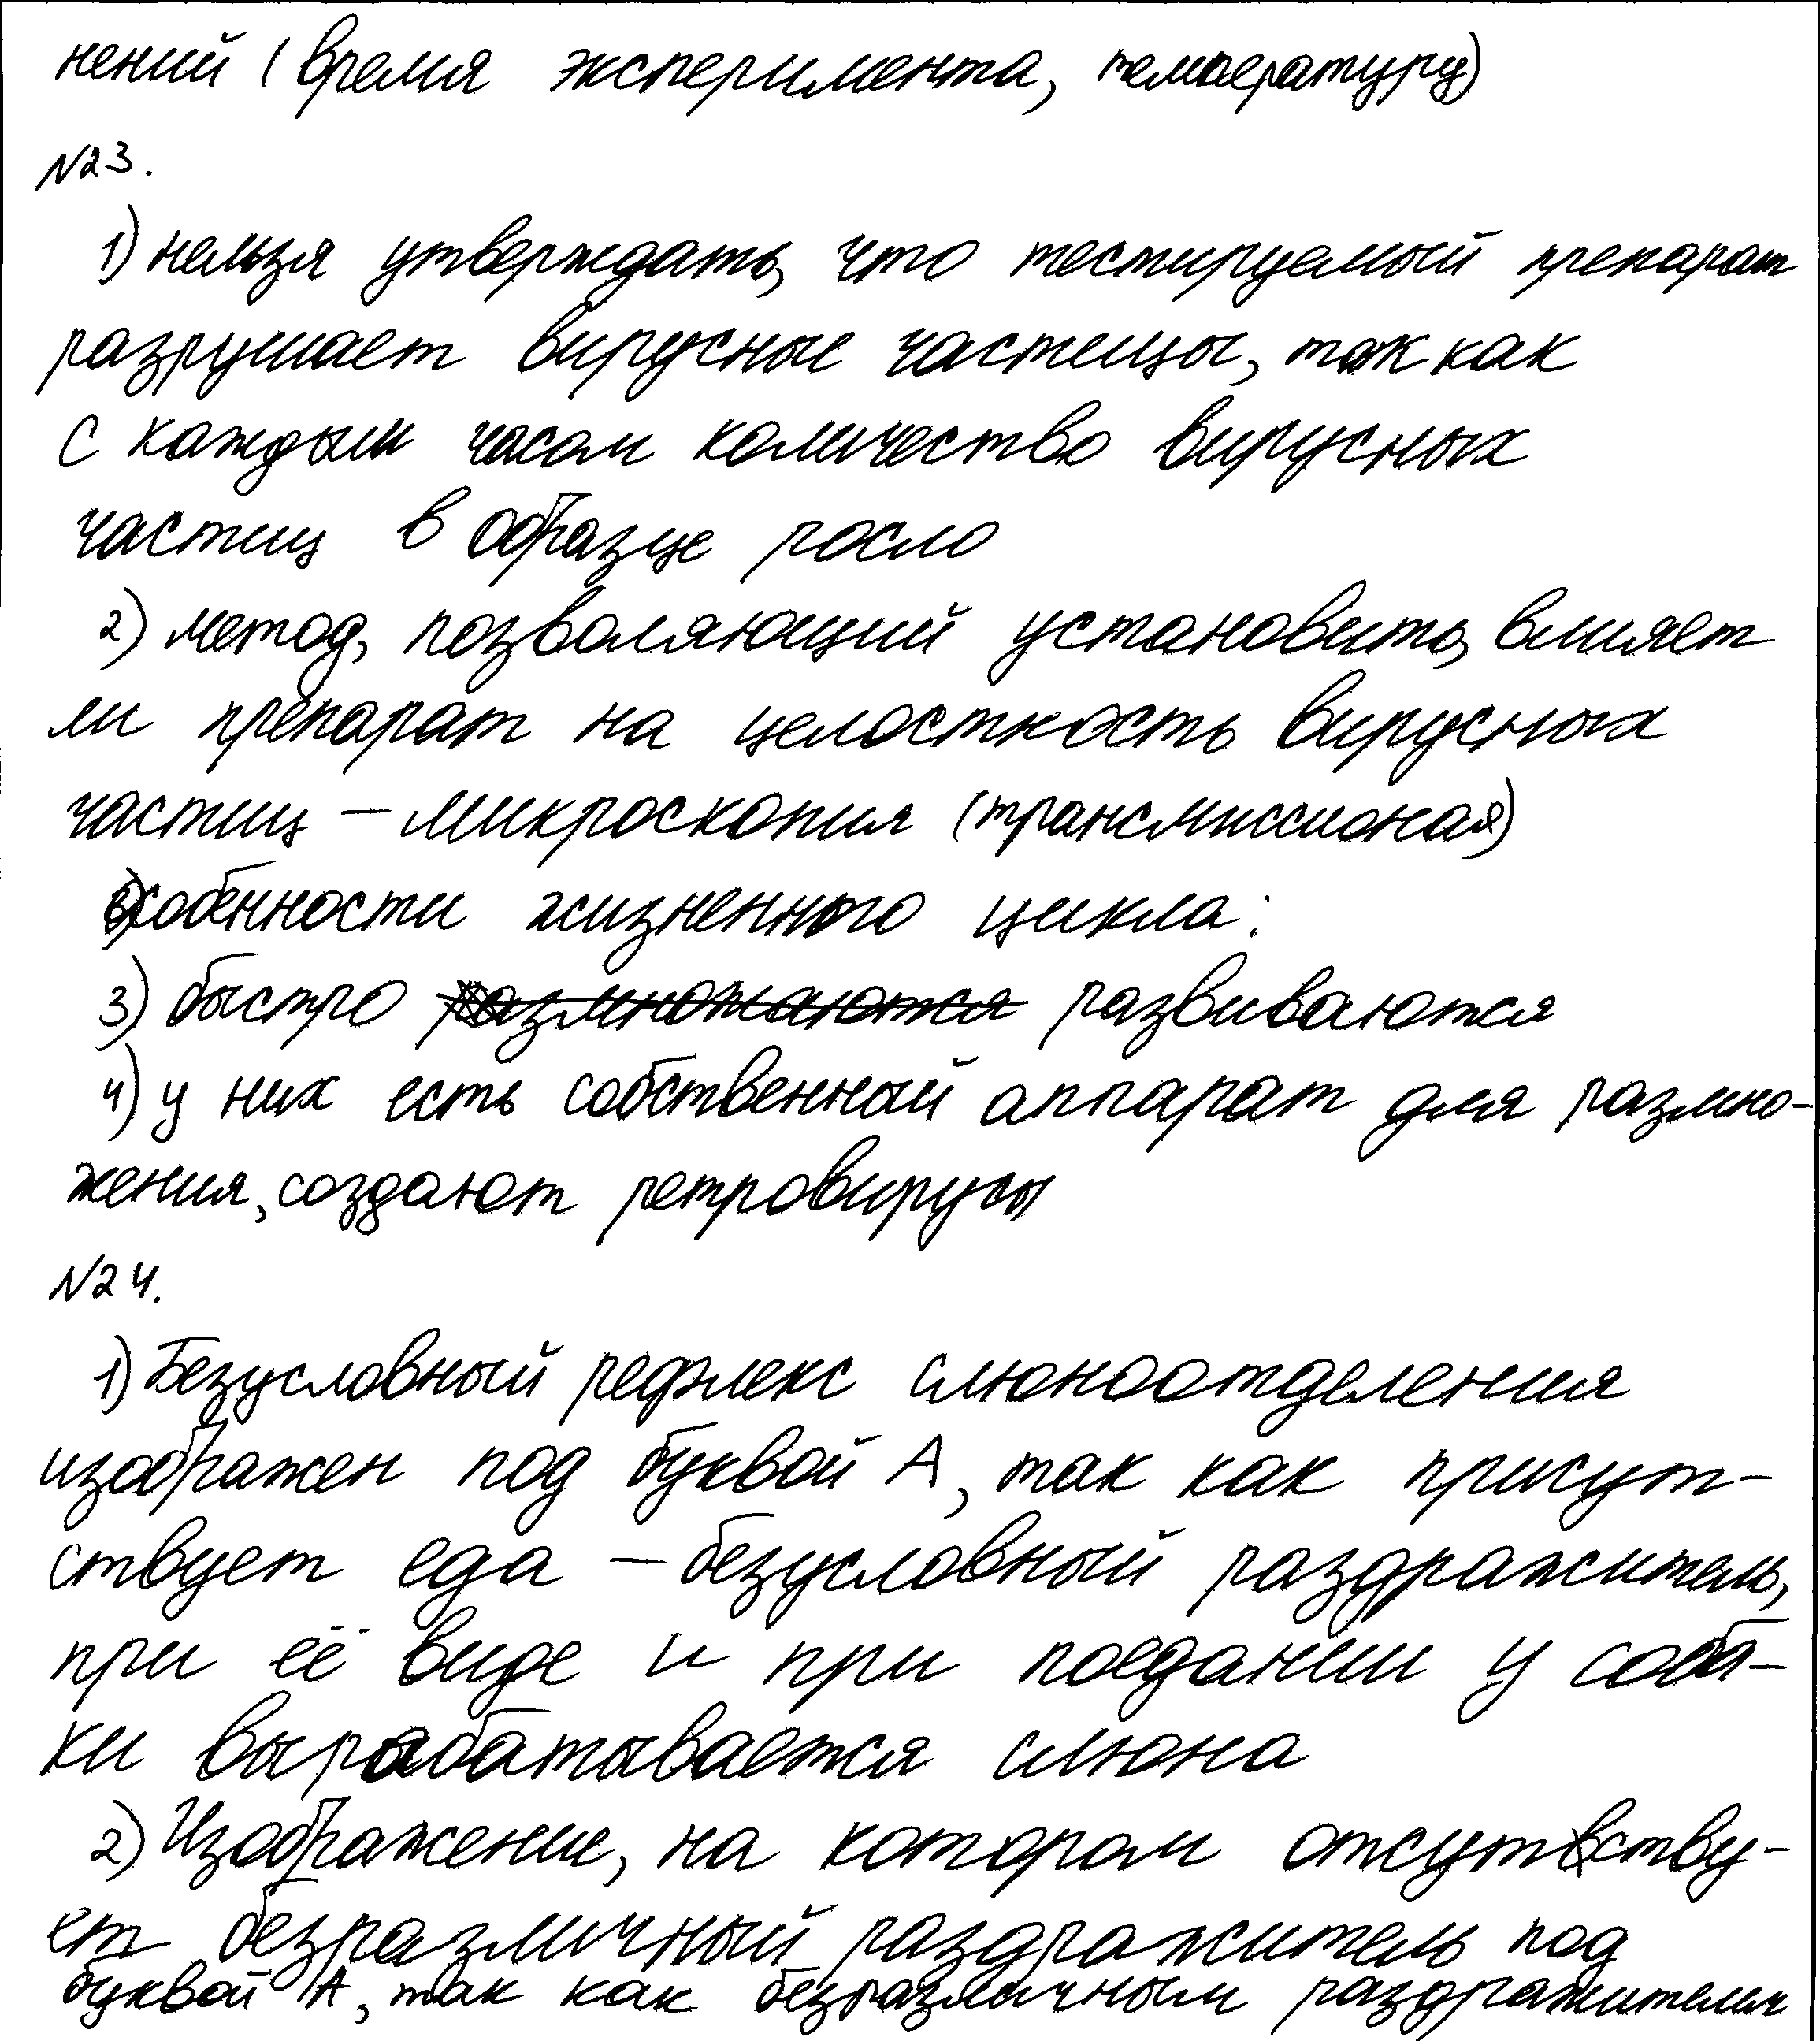 нений (время эксперимента, температуру)
№23.
1) нельзя утверждать, что тестируемый препарат
разрушает вирусные частицы, так как
с каждым часом количество вирусных
частиц в образце росло
2) метод, позволяющий установить, влияет
ли препарат на целостность вирусных
частиц – микроскопия (трансмиссионая)
особенности жизненного цикла:
3) быстро размножаются развиваются
4) у них есть собственный аппарат для размно-
жения, создают ретровирусы
№24.
1) Безусловный рефлекс слюноотделения
изображен под буквой А, так как присут-
ствует еда – безусловный раздражитель,
при её виде и при поедании у соба-
ки вырабатывается слюна
2) Изображение, на котором отсутству-
ет безразличный раздражитель под
буквой А, так как безразличным раздражителем